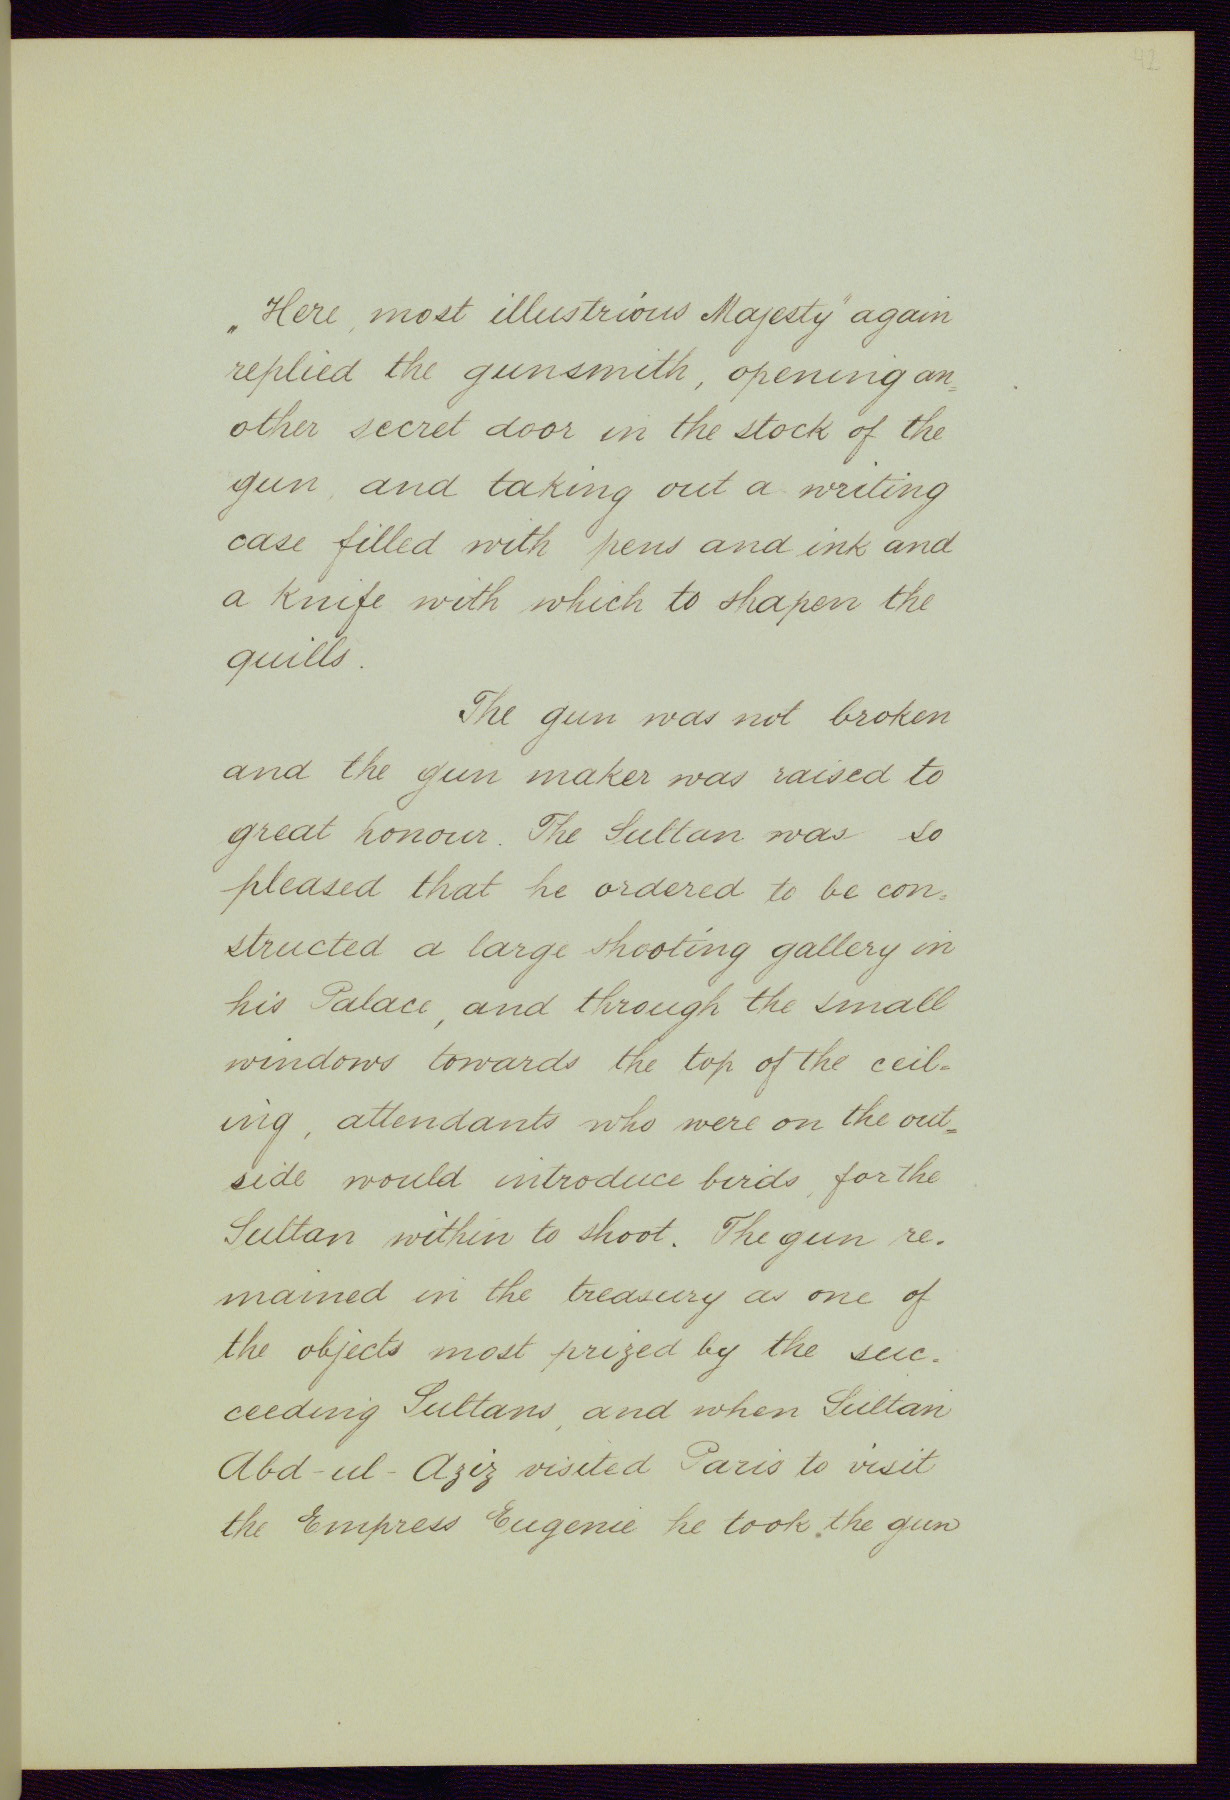 42
„Here, most illustrious Majesty" again
replied the gunsmith, opening an=
other secret door in the stock of the
gun, and taking out a writing
case filled with pens and ink and
a knife with which to shapen the
quills.
The gun was not broken
and the gun maker was raised to
great honour. The Sultan was so
pleased that he ordered to be con=
structed a large shooting gallery in
his Palace, and through the small
windows towards the top of the ceil=
ing, attendants who were on the out=
side would introduce birds, for the
Sultan within to shoot. The gun re=
mained in the treasury as one of
the objects most prized by the suc=
ceeding Sultans, and when Sultan
Abd-ul-Aziz visited Paris to visit
the Empress Eugenie he took the gun